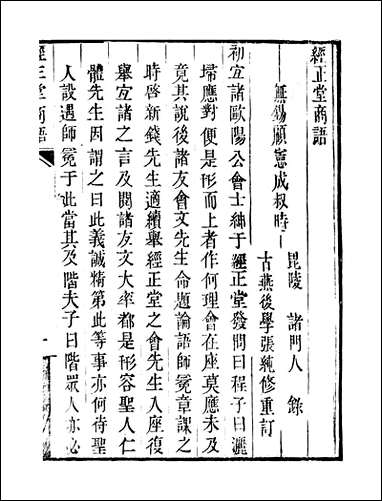 經正堂商語
無錫顧憲成叔時一
毘陵　諸門人　錄
古燕後學張純修重訂
初宜諸歐陽公會士紳于經正堂發問曰程子曰灑
埽應對便是形而上者作何理會在座莫應未及
竟其說後諸友會文先生命題論語師冕章課之
時啓新錢先生適續舉經正堂之會先生入座復
舉宜諸之言及閱諸友文大率都是形容聖人仁
體先生因謂之曰此義誠精第此等事亦何待聖
人設遇師冕于此當其及階夫子曰階眾人亦必
經正堂商語
一